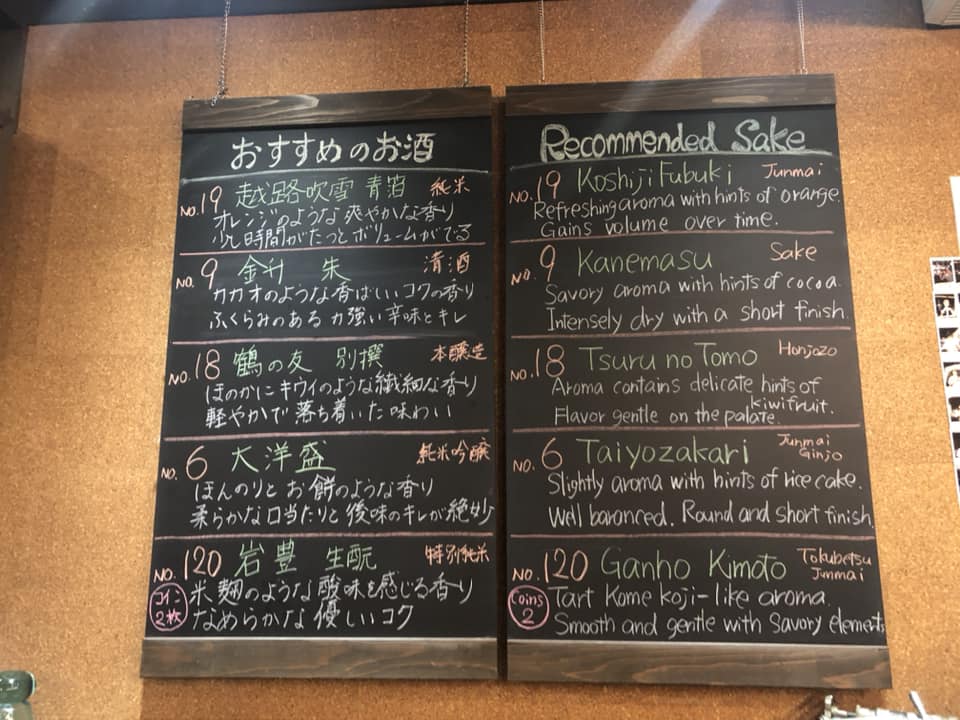 おすすめのお酒
NO.19 越路吹雪 青箔 純米
オレンジのような爽やかな香り
少し時間がたつとボリュームがでる
NO.9 金升 朱 清酒
カカオのような香ばしいコクの香り
ふくらみのある力強い辛味とキレ
NO.18 鶴の友 別撰 本醸造
ほのかにキウイのような繊細な香り
軽やかで落ち着いた味わい
NO.6 大洋盛 純米吟醸
ほんのりとお餅のような香り
柔らかな口当たりと後味のキレが絶妙
NO.120 岩豊 生酛 特別純米
コイン2枚
米麹のような酸味を感じる香り
なめらかな優しいコク
Recommended Sake
NO.19 Koshiji Fubuki Junmai
Refreshing aroma with hints of orange.
Gains volume over time.
NO.9 Kanemasu Sake
Savory aroma with hints of cocoa.
Intensely dry with a short finish.
NO.18 Tsuru no Tomo Honjozo
Aroma contains delicate hints of
kiwifruit.
Flavor gentle on the palate.
NO.6 Taiyozakari Junmai Ginjo
Slightly aroma with hints of rice cake.
Well baranced. Round and short finish.
NO.120 Ganho Kimoto Tokubetsu Junmai
Coins 2
Tart Kome koji-like aroma.
Smooth and gentle with Savory elements